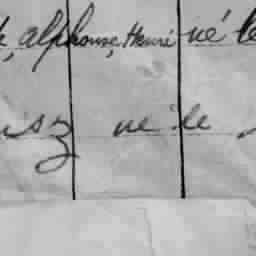 , alphonse, Henri né le
né le